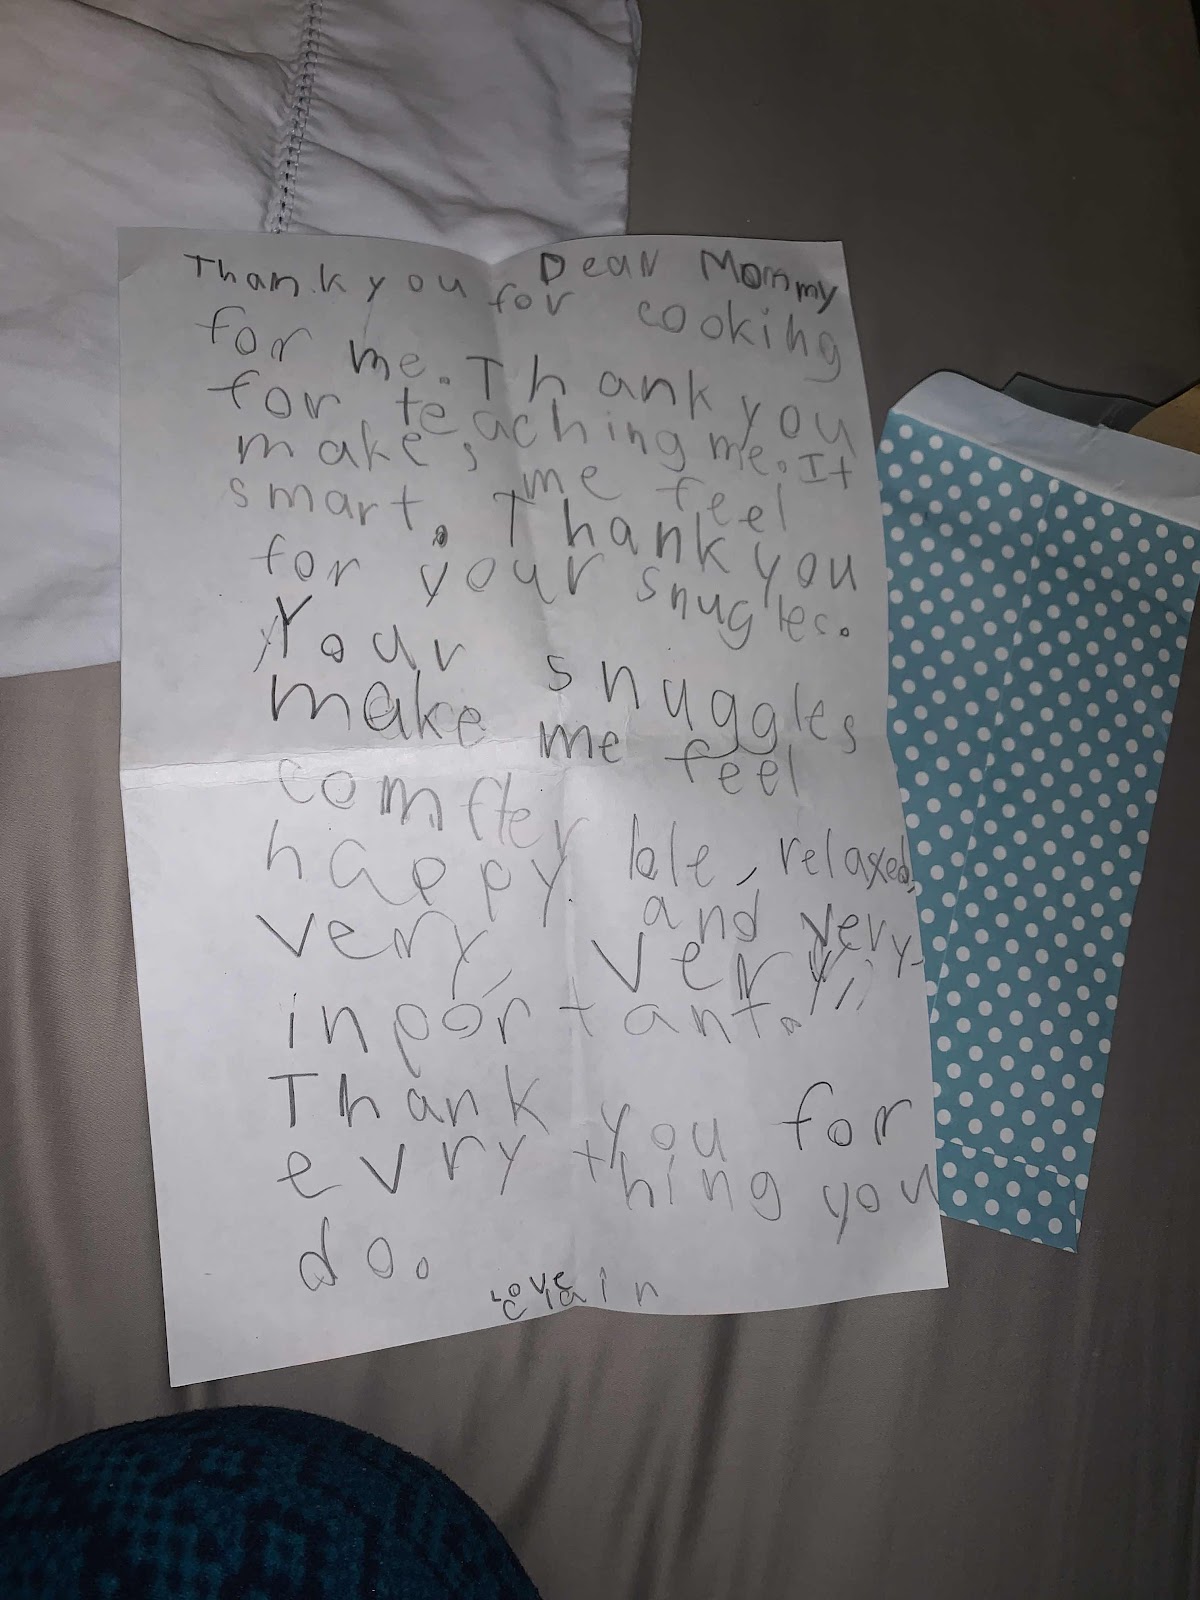 Dear Mommy
Thank you for cooking
for me. Thank you
for teaching me. It
makes me feel
smart. Thank you
for your snugles.
Your snuggles
make me feel
comfter ble, relaxed,
happy and very,
very, very,
inportant.
Thank you for
evry thing you
do.
Love
Clain